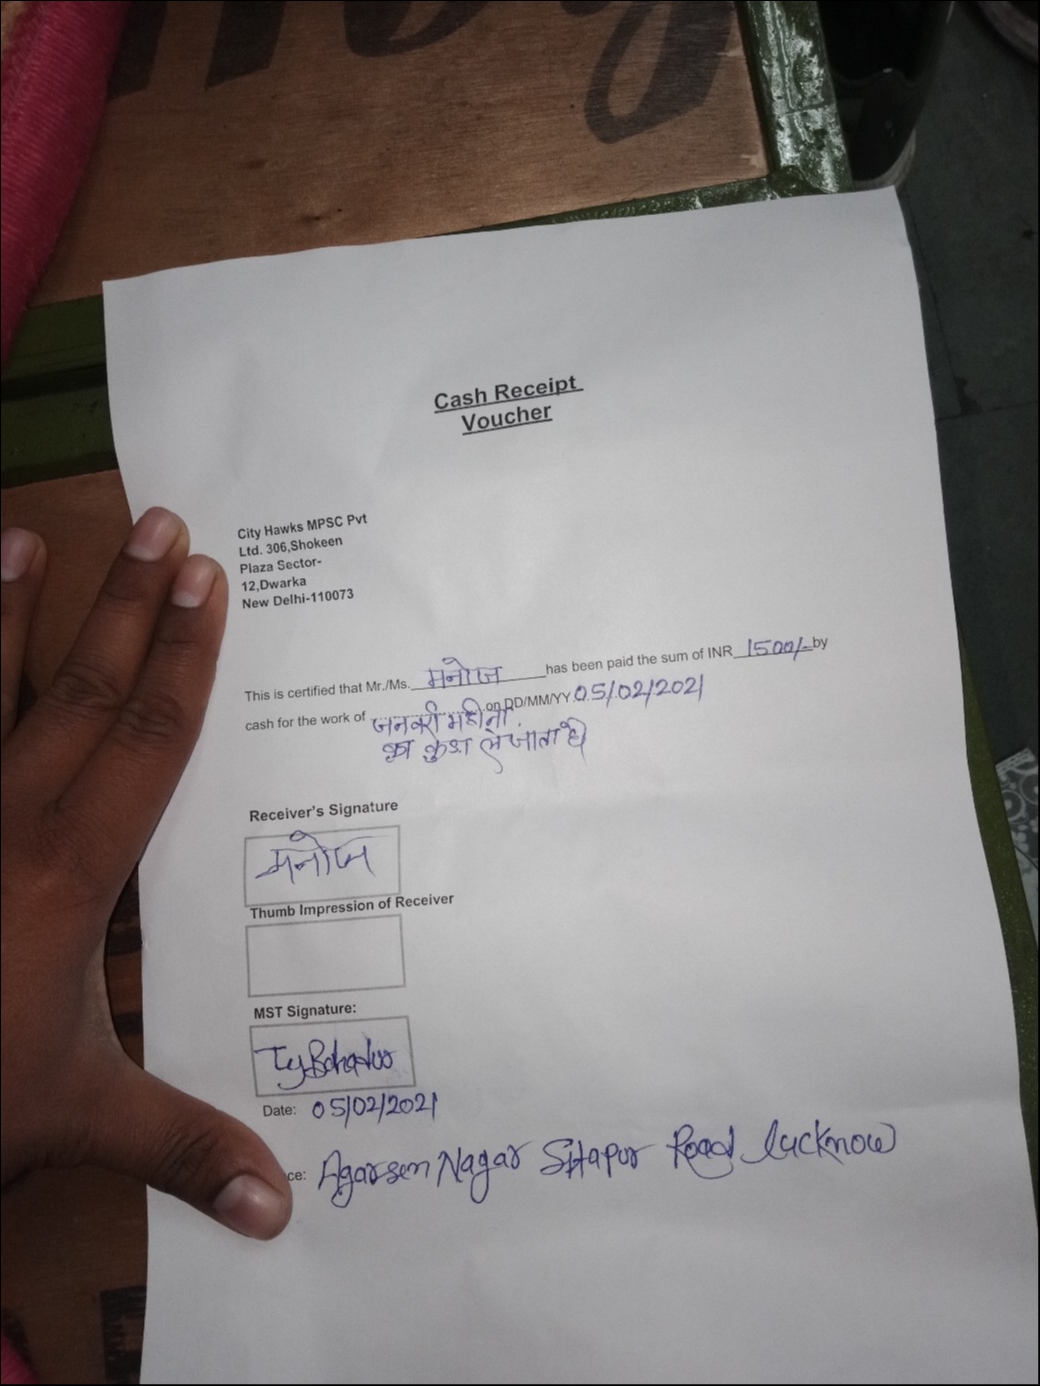 Cash Receipt
Voucher
City Hawks MPSC Pvt
Ltd. 306,Shokeen
Plaza Sector-
12,Dwarka
New Delhi-110073
This is certified that Mr./Ms. मनोज has been paid the sum of INR 1500/- by
cash for the work of जनवरी महीना on DD/MM/YY 05/02/2021
का कुड़ा ले जाता है
Receiver's Signature
मनोज
Thumb Impression of Receiver
MST Signature:
Date: 05/02/2021
ce: Agarsen Nagar Sitapur Road lucknow